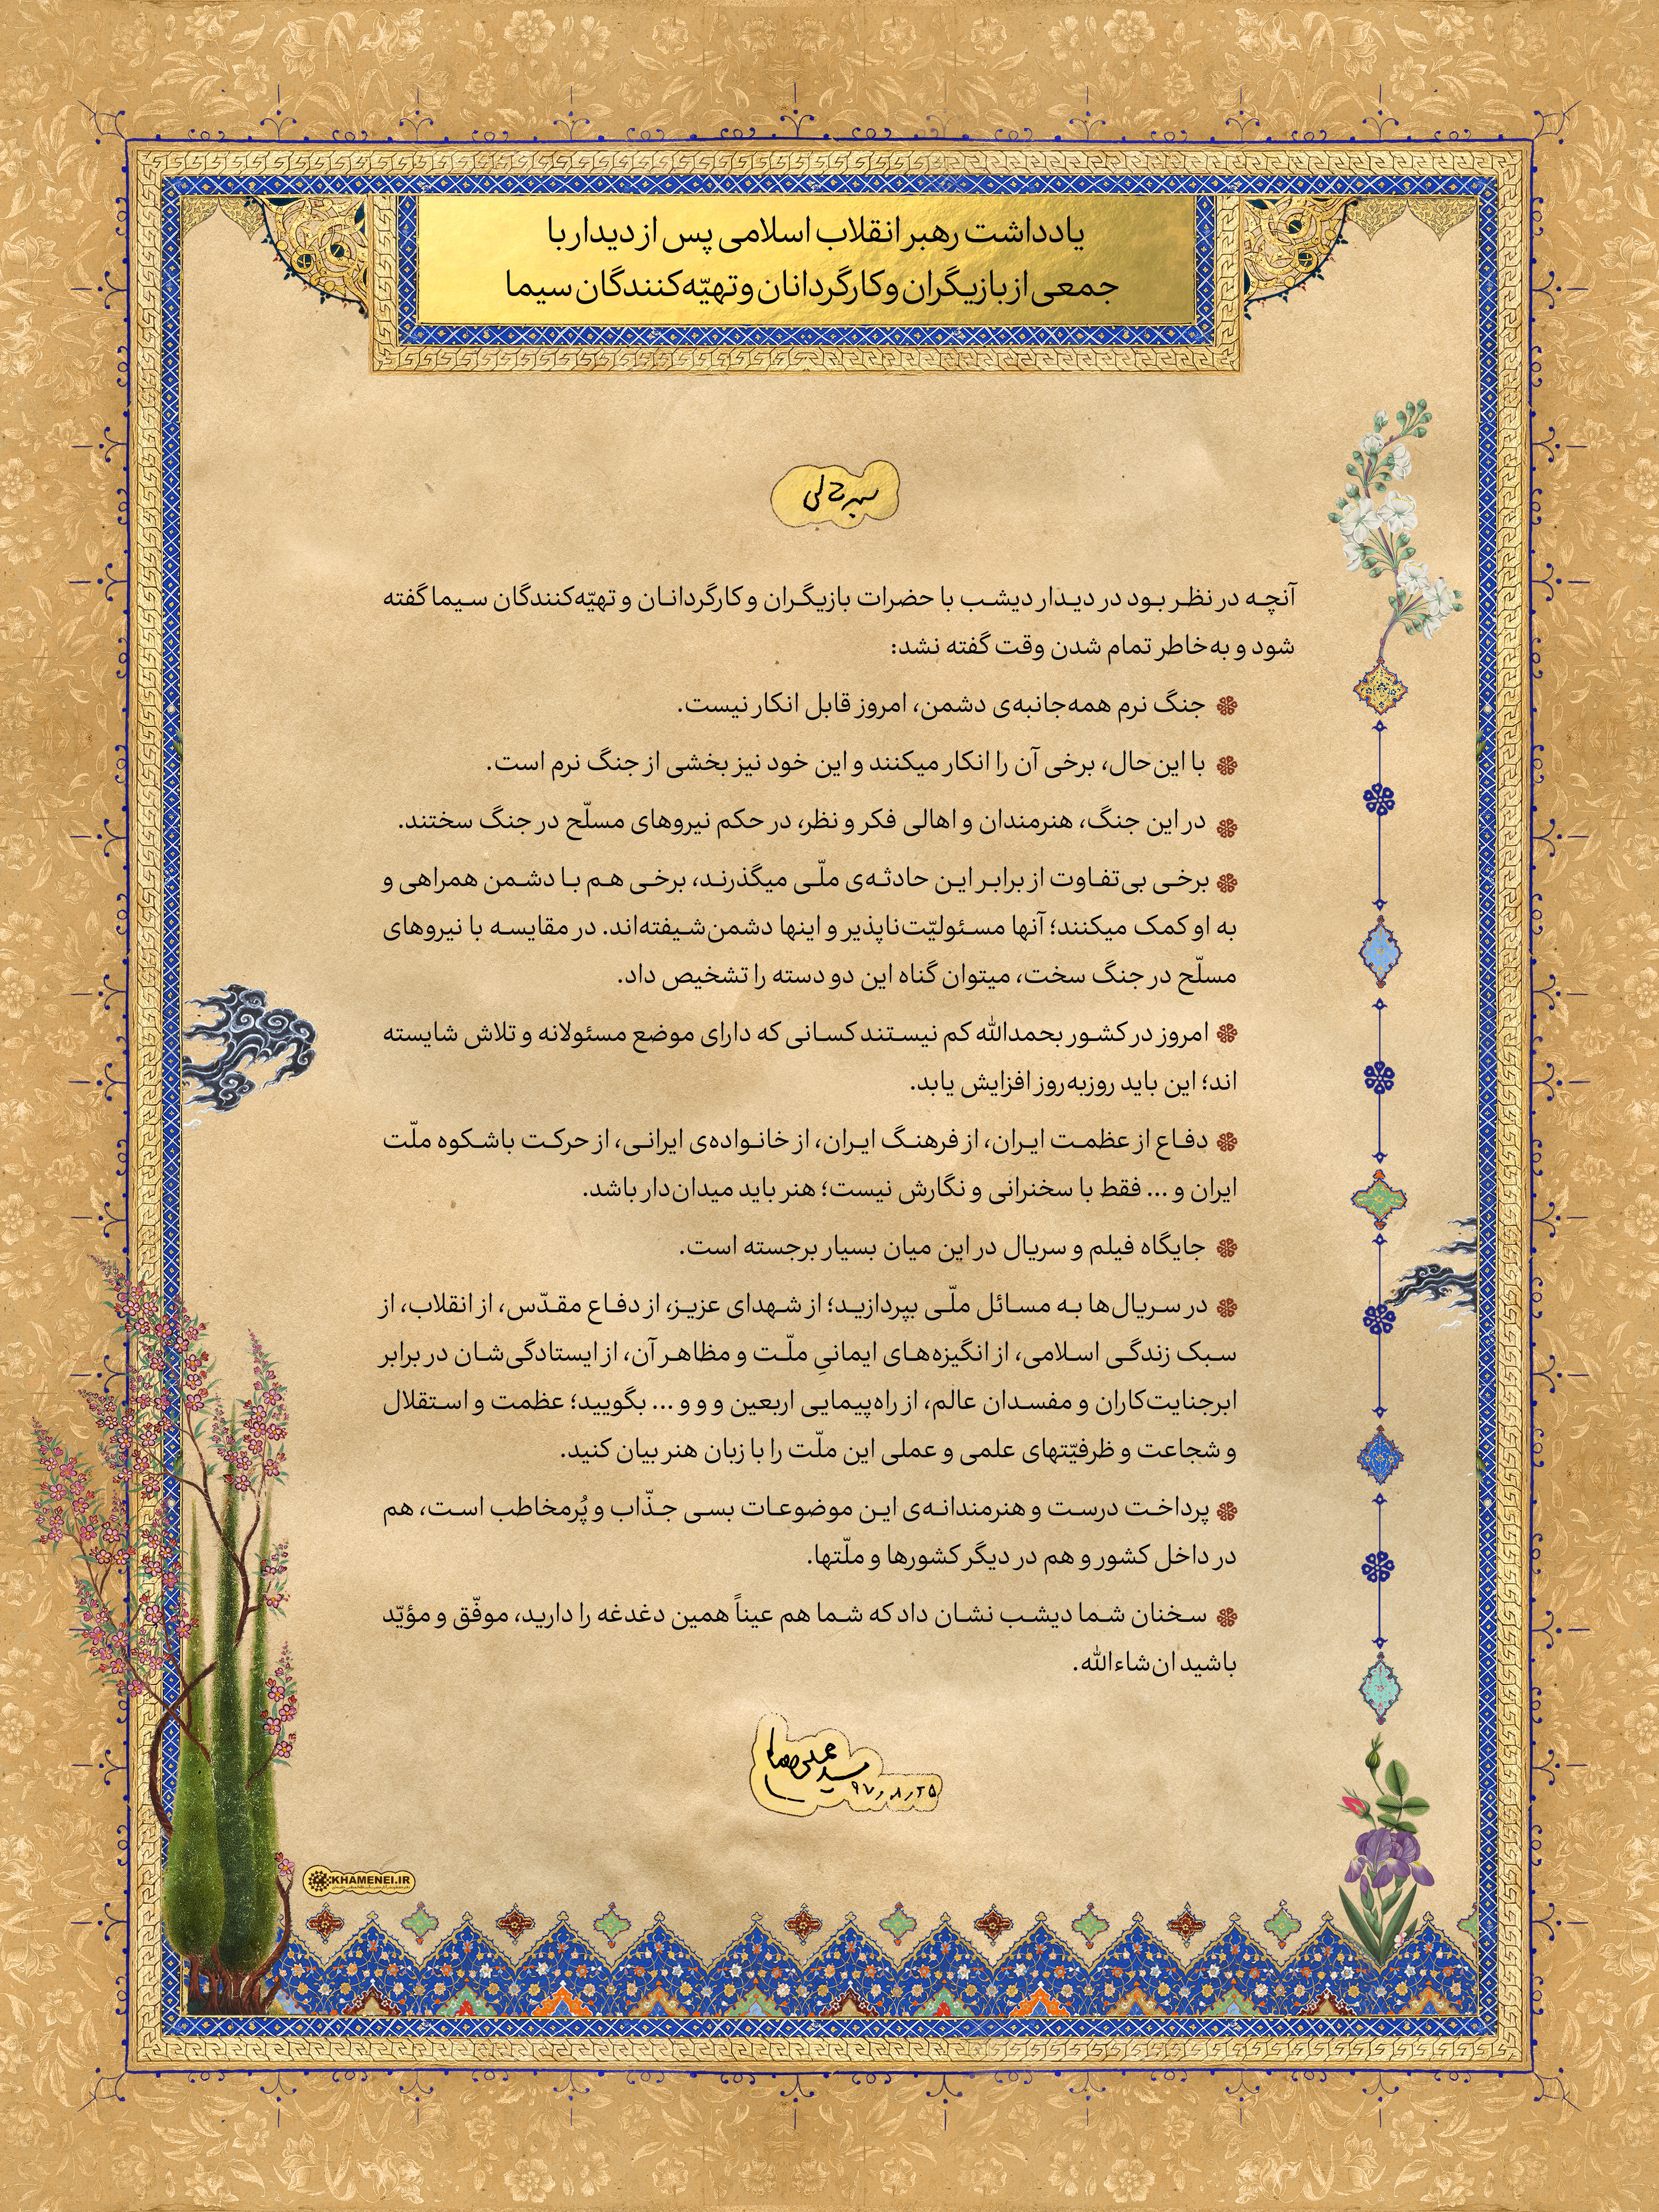 یادداشت رهبر انقلاب اسلامی پس از دیدار با
جمعی از بازیگران و کارگردانان و تهیّه‌کنندگان سیما
آنچه در نظر بود در دیدار دیشب با حضرات بازیگران و کارگردانان و تهیّه‌کنندگان سیما گفته
شود و به‌خاطر تمام شدن وقت گفته نشد:
جنگ نرم همه‌جانبه‌ی دشمن، امروز قابل انکار نیست.
با این‌حال، برخی آن را انکار میکنند و این خود نیز بخشی از جنگ نرم است.
در این جنگ، هنرمندان و اهالی فکر و نظر، در حکم نیروهای مسلّح در جنگ سختند.
برخی بی‌تفاوت از برابر این حادثه‌ی ملّی میگذرند، برخی هم با دشمن همراهی و
به او کمک میکنند؛ آنها مسئولیّت‌ناپذیر و اینها دشمن‌شیفته‌اند. در مقایسه با نیروهای
مسلّح در جنگ سخت، میتوان گناه این دو دسته را تشخیص داد.
امروز در کشور بحمدالله کم نیستند کسانی که دارای موضع مسئولانه و تلاش شایسته
اند؛ این باید روزبه‌روز افزایش یابد.
دفاع از عظمت ایران، از فرهنگ ایران، از خانواده‌ی ایرانی، از حرکت باشکوه ملّت
ایران و ... فقط با سخنرانی و نگارش نیست؛ هنر باید میدان‌دار باشد.
جایگاه فیلم و سریال در این میان بسیار برجسته است.
در سریال‌ها به مسائل ملّی بپردازید؛ از شهدای عزیز، از دفاع مقدّس، از انقلاب، از
سبک زندگی اسلامی، از انگیزه‌های ایمانیِ ملّت و مظاهر آن، از ایستادگی‌شان در برابر
ابرجنایت‌کاران و مفسدان عالم، از راه‌پیمایی اربعین و و و ... بگویید؛ عظمت و استقلال
و شجاعت و ظرفیّتهای علمی و عملی این ملّت را با زبان هنر بیان کنید.
پرداخت درست و هنرمندانه‌ی این موضوعات بسی جذّاب و پُرمخاطب است، هم
در داخل کشور و هم در دیگر کشورها و ملّتها.
سخنان شما دیشب نشان داد که شما هم عیناً همین دغدغه را دارید، موفّق و مؤیّد
باشید ان‌شاءالله.
سید علی خامنه‌ای
۹۷٫۸٫۲۵
KHAMENEI.IR